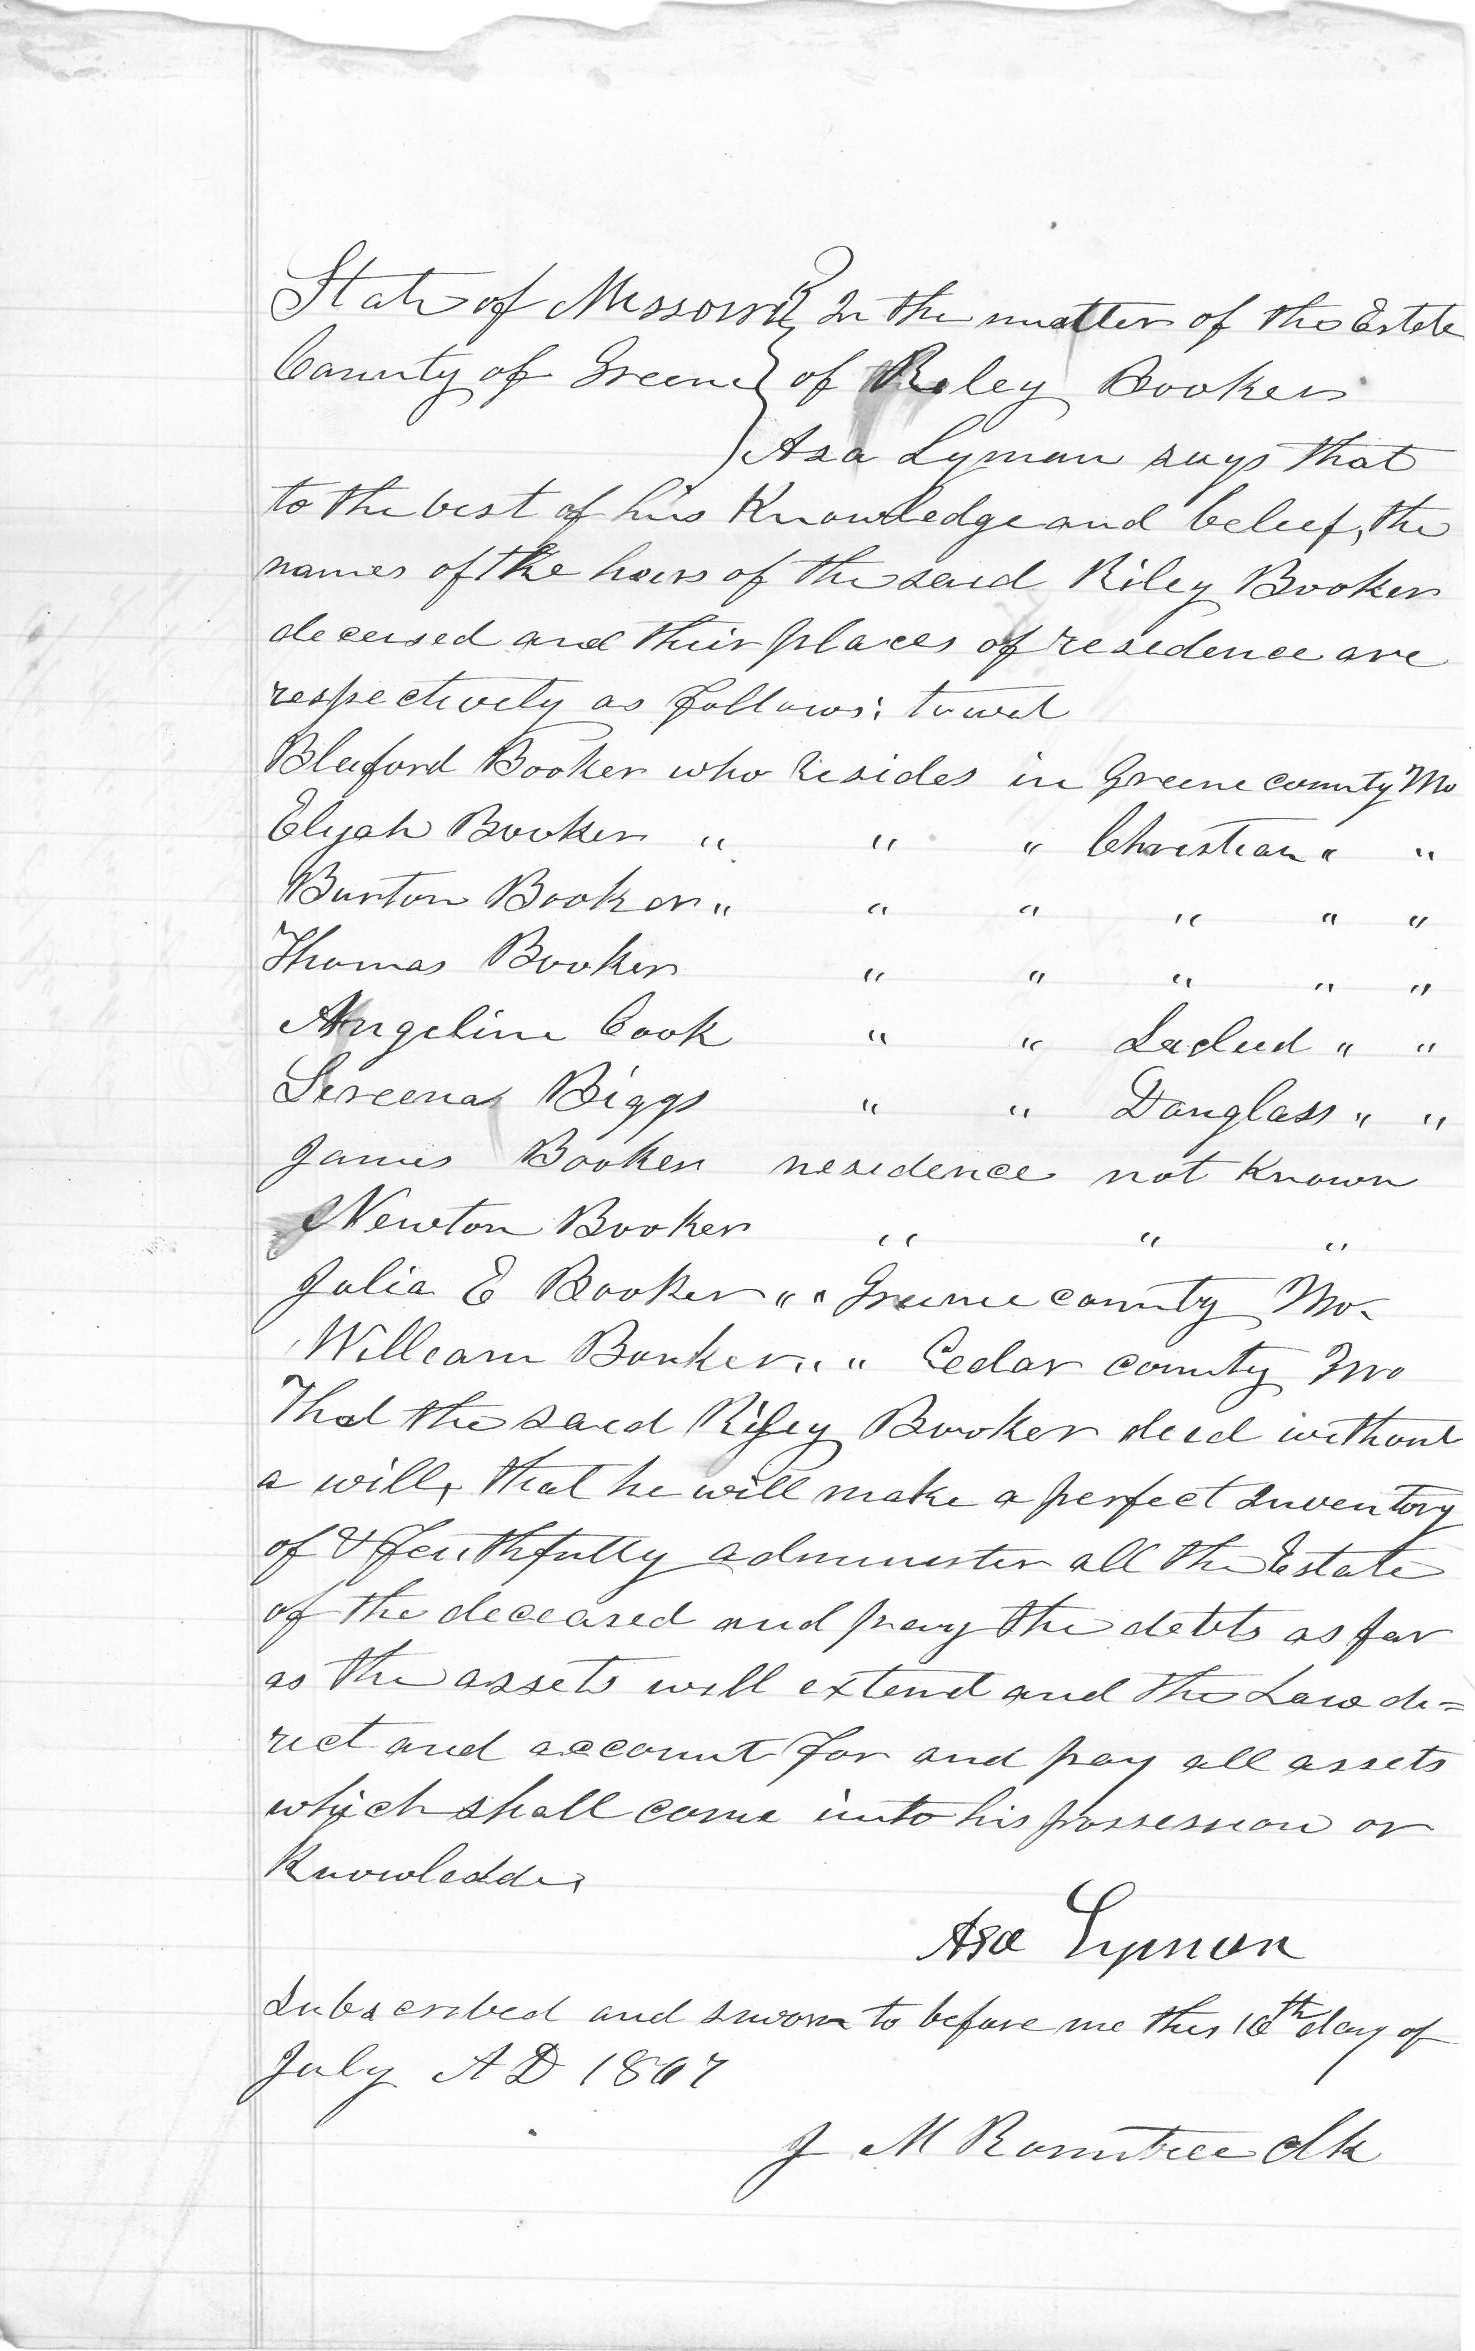 State of Missouri } In the matter of the Estate
County of Greene } of Riley Booker
Asa Lyman says that
to the best of his Knowledge and beleef, the
names of the heirs of the said Riley Booker
deceised and their places of residence are
respectively as follows: towit
Bleuford Booker who resides in Greene county Mo
Elijah Booker " " " Christian " "
Burton Booker " " " " " "
Thomas Booker " " " " "
Angeline Cook " " Laclud " "
Sereena Biggs " " Douglass " "
James Booker residence not Known
Newton Booker " " "
Julia E Booker " " Greene county Mo.
William Booker " " Cedar county Mo
That the said Riley Booker died without
a will, that he will make a perfect Inventory
of & Feithfully administer all the Estate
of the deceased and pay the debts as far
as the assets will extend and the Law di=
rect and account for and pay all assets
which shall come into his possession or
Knowledde,
Asa Lyman
Subscribed and sworn to before me this 10th day of
July AD 1867
J M Rountree Clk